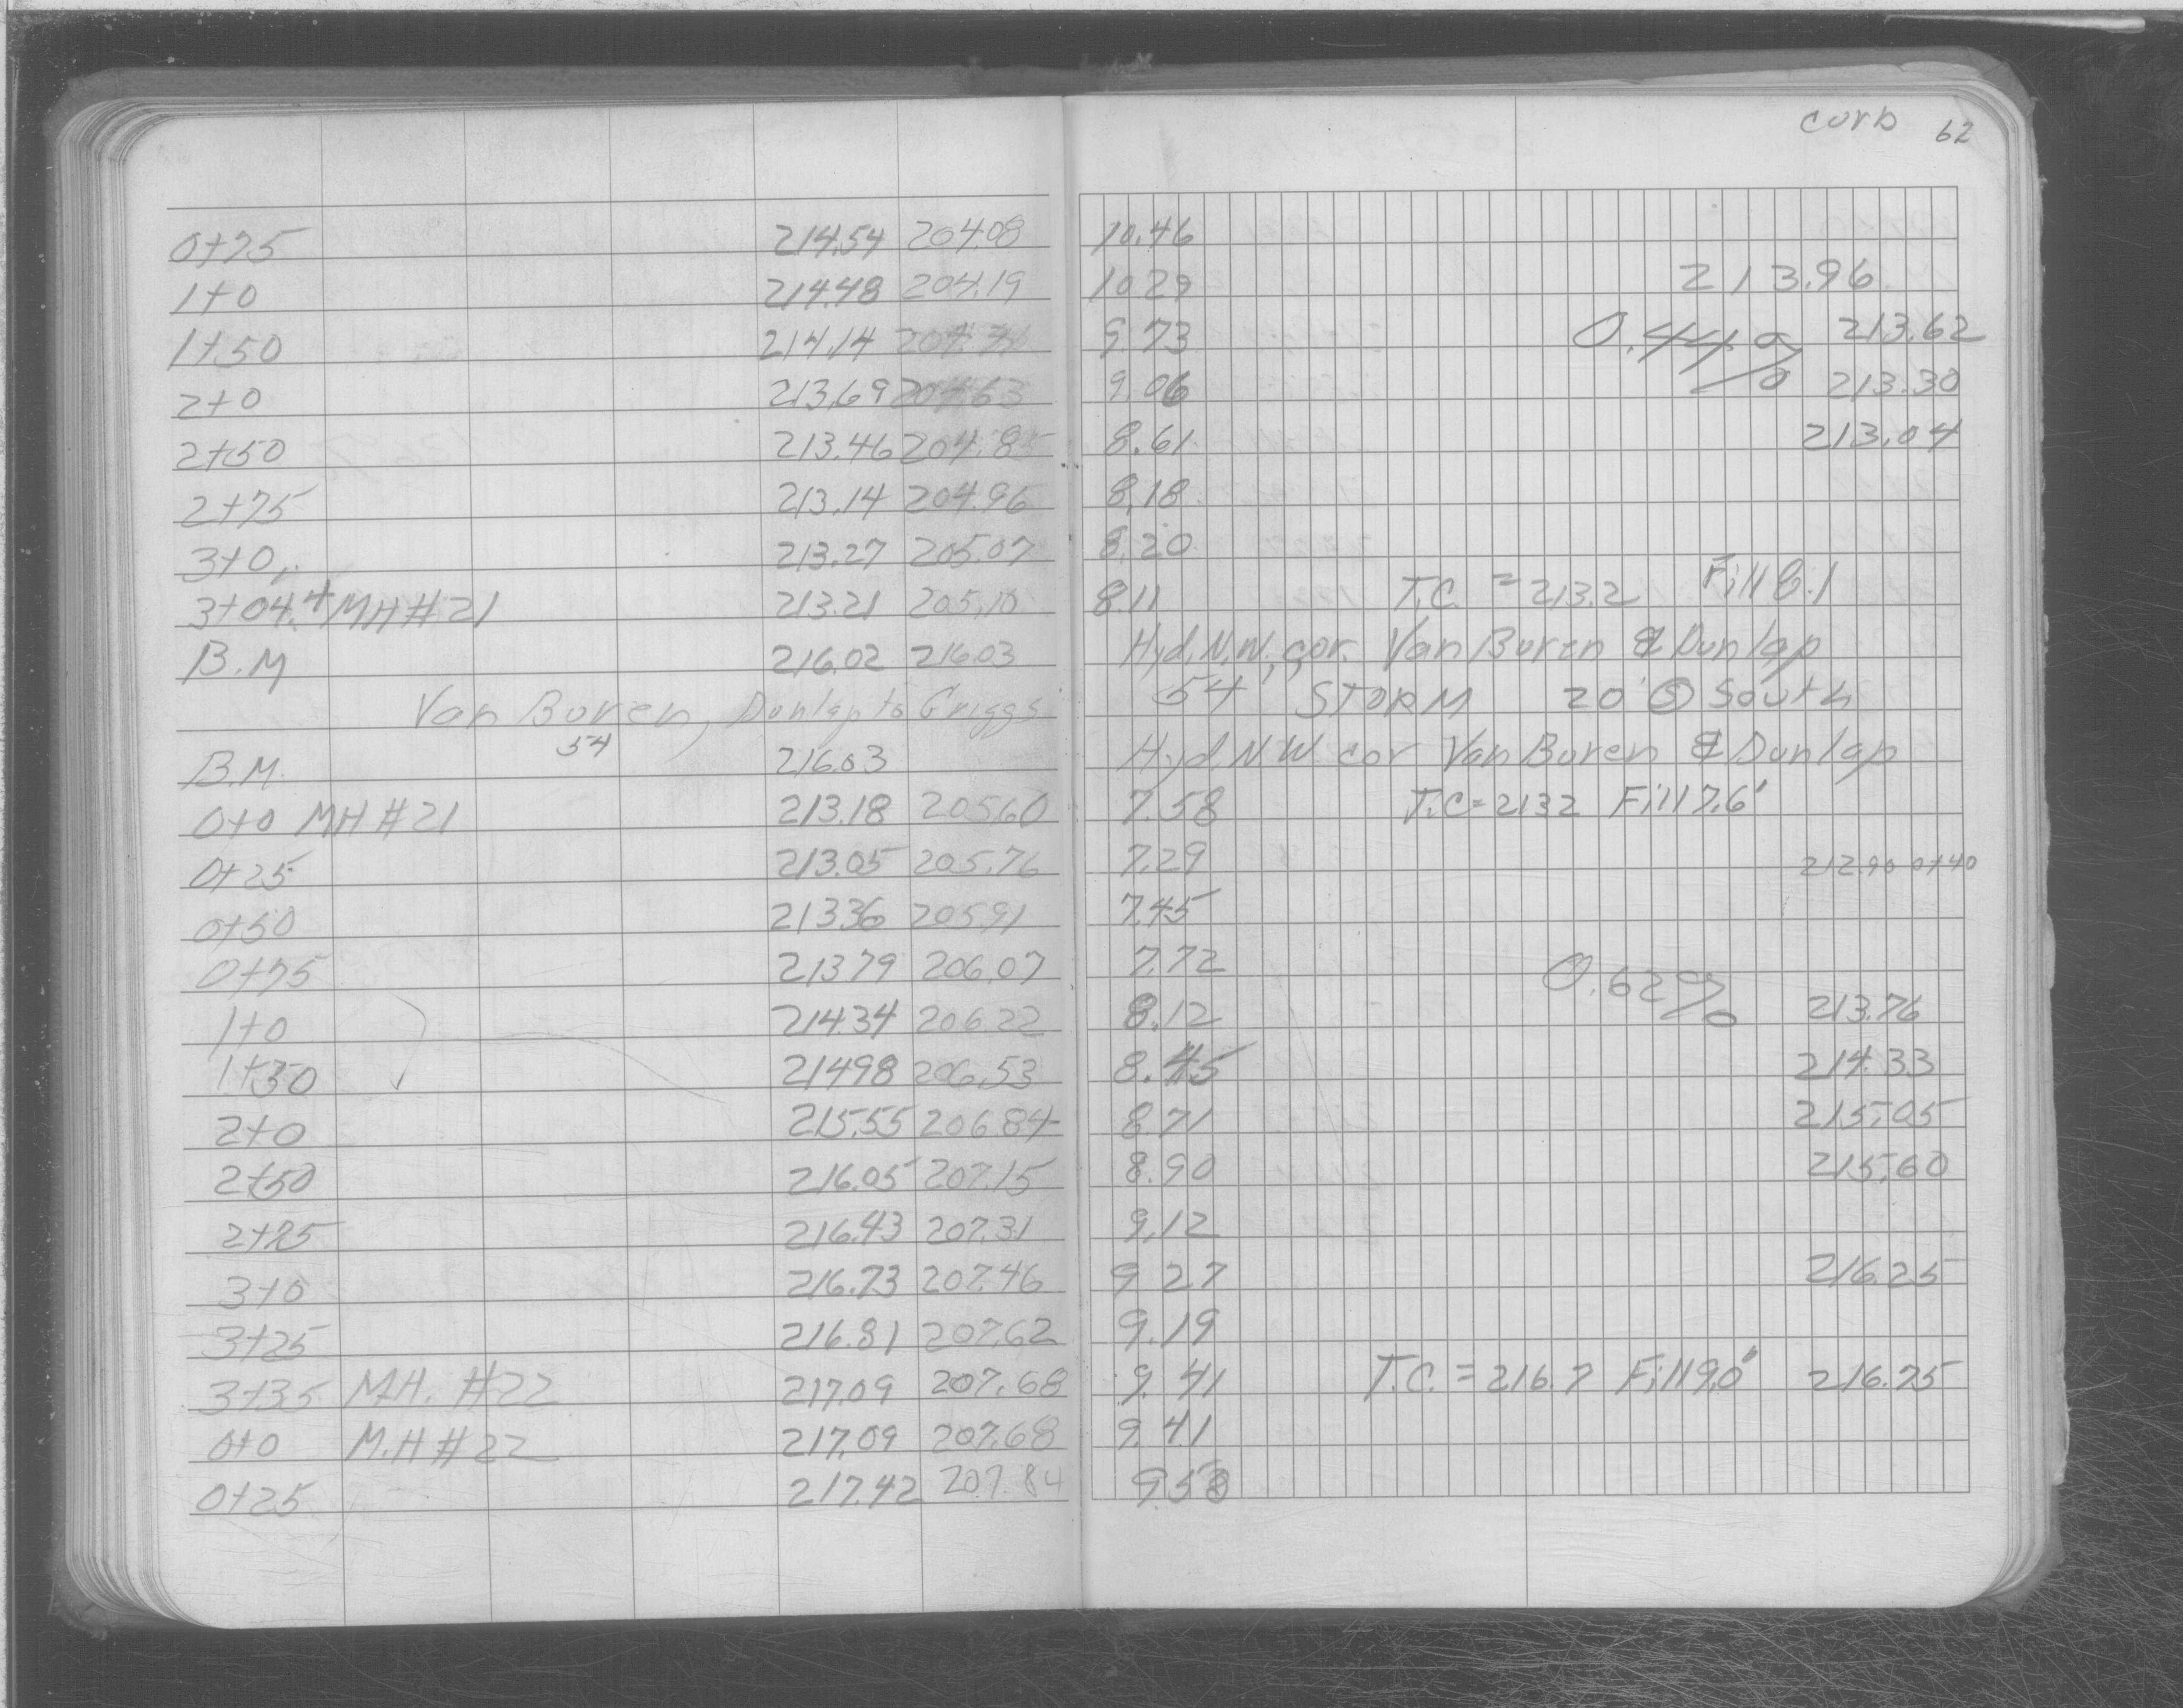 curb 62
0+75 214.54 204.08 10.46
1+0 214.48 204.19 10 29 213.96
1+50 214.14 9.73 0.44% 213.62
2+0 213.69 204.63 9.06 213.30
2+50 213.46 204.85 8.61 213.04
2+75 213.14 204.96 8.18
3+0 213.27 205.07 8.20
3+04.4 MH #21 213.21 205.10 8.11 T.C. = 213.2 Fill 8.1
B.M 216.02 216.03 Hyd. N.W. cor. Van Buren & Dunlap
Van Buren, Dunlap to Griggs 54" STORM 20' S South
54
B.M. 216.03 Hyd. N.W. cor Van Buren & Dunlap
0+0 MH #21 213.18 205.60 7.58 T.C = 213.2 Fill 7.6'
0+25 213.05 205.76 7.29 212.90 0+40
0+50 213.36 205.91 7.45
0+75 213.79 206.07 7.72 0.62%
1+0 214.34 206.22 8.12 213.76
1+50 214.98 206.53 8.45 214.33
2+0 215.55 206.84 8.71 215.05
2+50 216.05 207.15 8.90 215.60
2+75 216.43 207.31 9.12
3+0 216.73 207.46 9 27 216.25
3+25 216.81 207.62 9.19
3+35 M.H. #22 217.09 207.68 9.41 T.C. = 216.7 Fill 9.0' 216.75
0+0 M.H #22 217.09 207.68 9.41
0+25 217.42 207.84 9.58